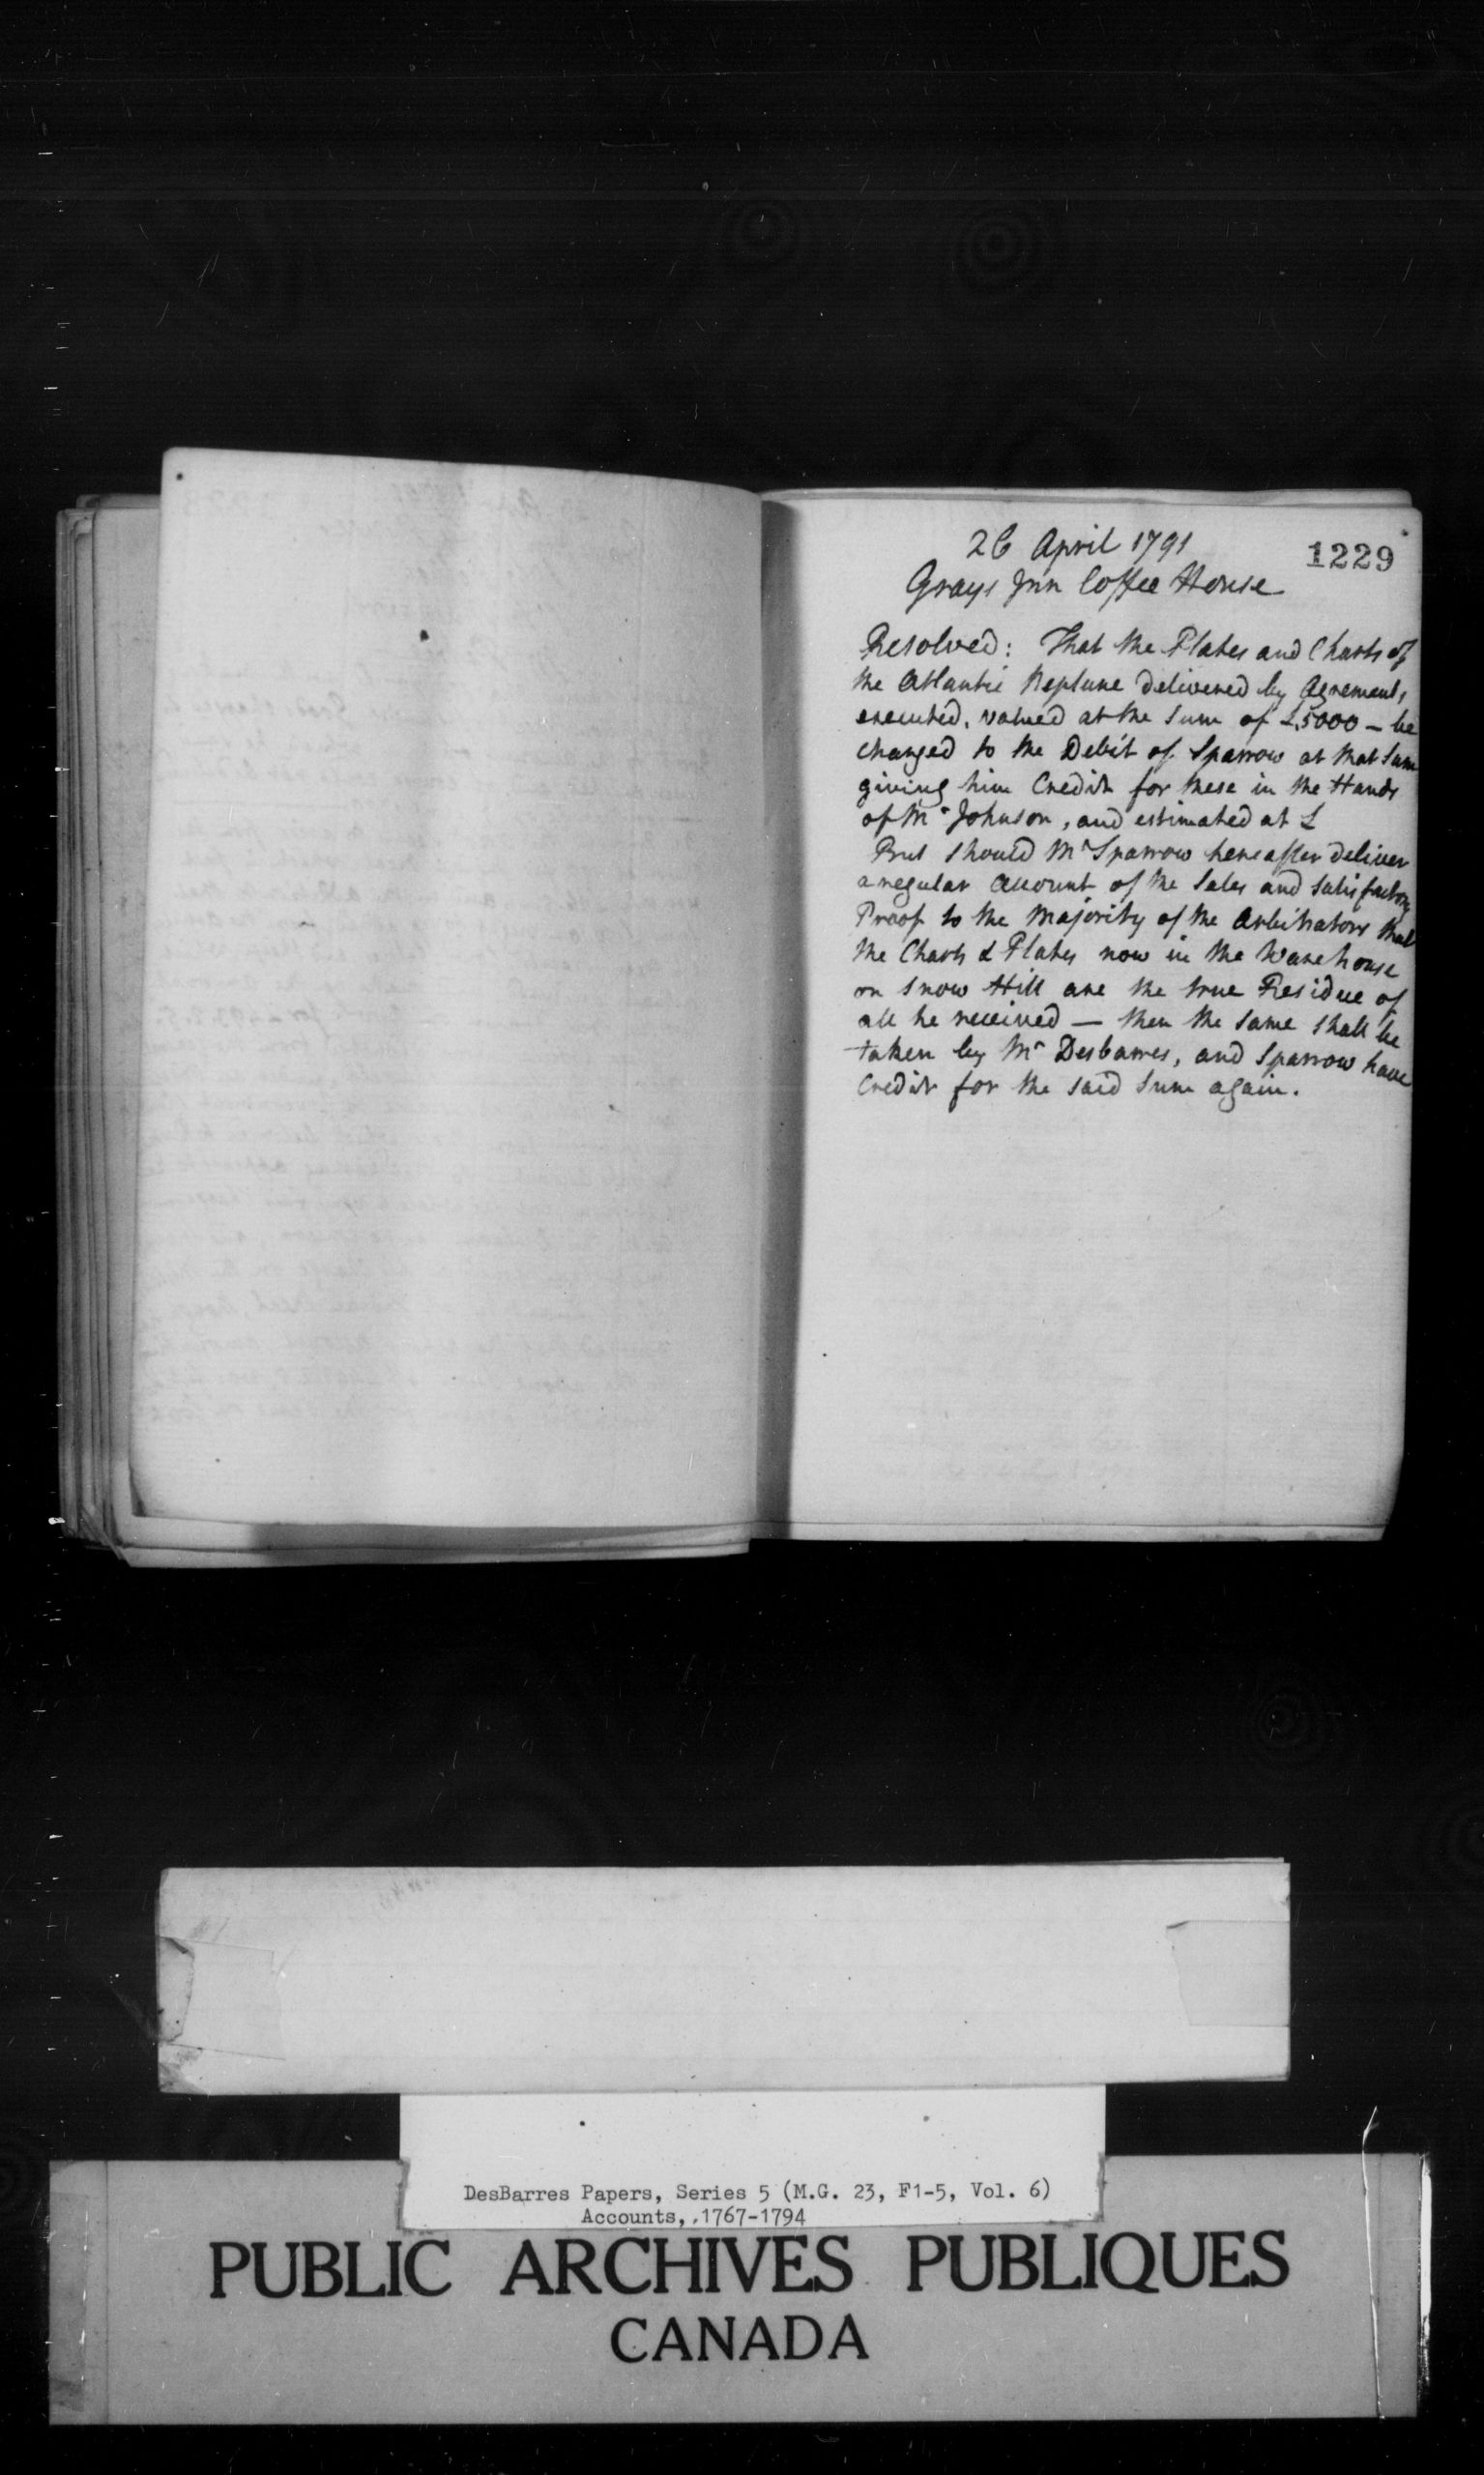 26 April 1791
1229
Grays Inn Coffee House
Resolved: That the Plates and Charts of
the Atlantic Neptune delivered by Agrement,
executed, valued at the Sum of £5000 - be
charged to the Debit of Sparrow at that Sum
giving him Credit for these in the Hands
of Mr Johnson, and estimated at £
But should Mr Sparrow hereafter deliver
a regular Account of the Sales and satisfactory
Proof to the Majority of the Arbitrators that
the Charts & Plates now in the Warehouse
on Snow Hill are the true Residue of
all he received — then the same shall be
taken by Mr Desbarres, and Sparrow have
Credit for the said Sum again.
DesBarres Papers, Series 5 (M.G. 23, F1-5, Vol. 6)
Accounts, 1767-1794
PUBLIC ARCHIVES PUBLIQUES
CANADA